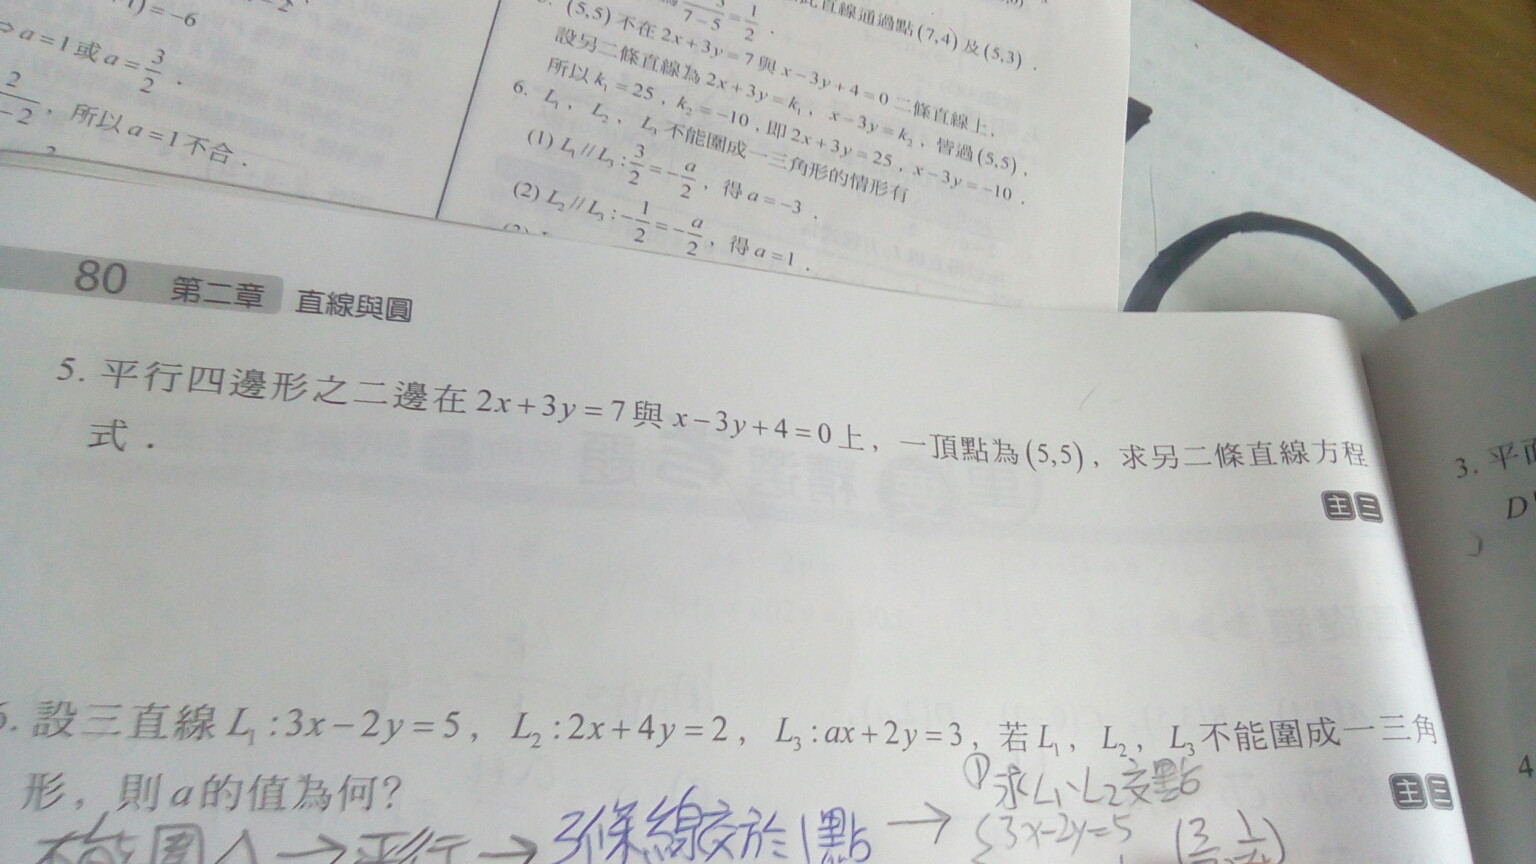 =-6
⇒a=1或a=3/2．
，所以a=1不合．
7-5 =1/2．
此直線通過點(7,4)及(5,3)．
(5,5)不在2x+3y=7與x-3y+4=0二條直線上，
設另二條直線為2x+3y=k₁，x-3y=k₂，皆過(5,5)，
所以k₁=25，k₂=-10，即2x+3y=25，x-3y=-10．
6. L₁、L₂、L₃不能圍成一三角形的情形有
(1) L₁//L₃:3/2=-a/2，得a=-3．
(2) L₂//L₃:-1/2=-a/2，得a=1．
80 第二章 直線與圓
5. 平行四邊形之二邊在2x+3y=7與x-3y+4=0上，一頂點為(5,5)，求另二條直線方程
式．
主三
6. 設三直線L₁:3x-2y=5，L₂:2x+4y=2，L₃:ax+2y=3，若L₁，L₂，L₃不能圍成一三角
形，則a的值為何？
主三
①求L₁、L₂交點
→平行→3條線交於1點→{3x-2y=5
3. 平面
D
4